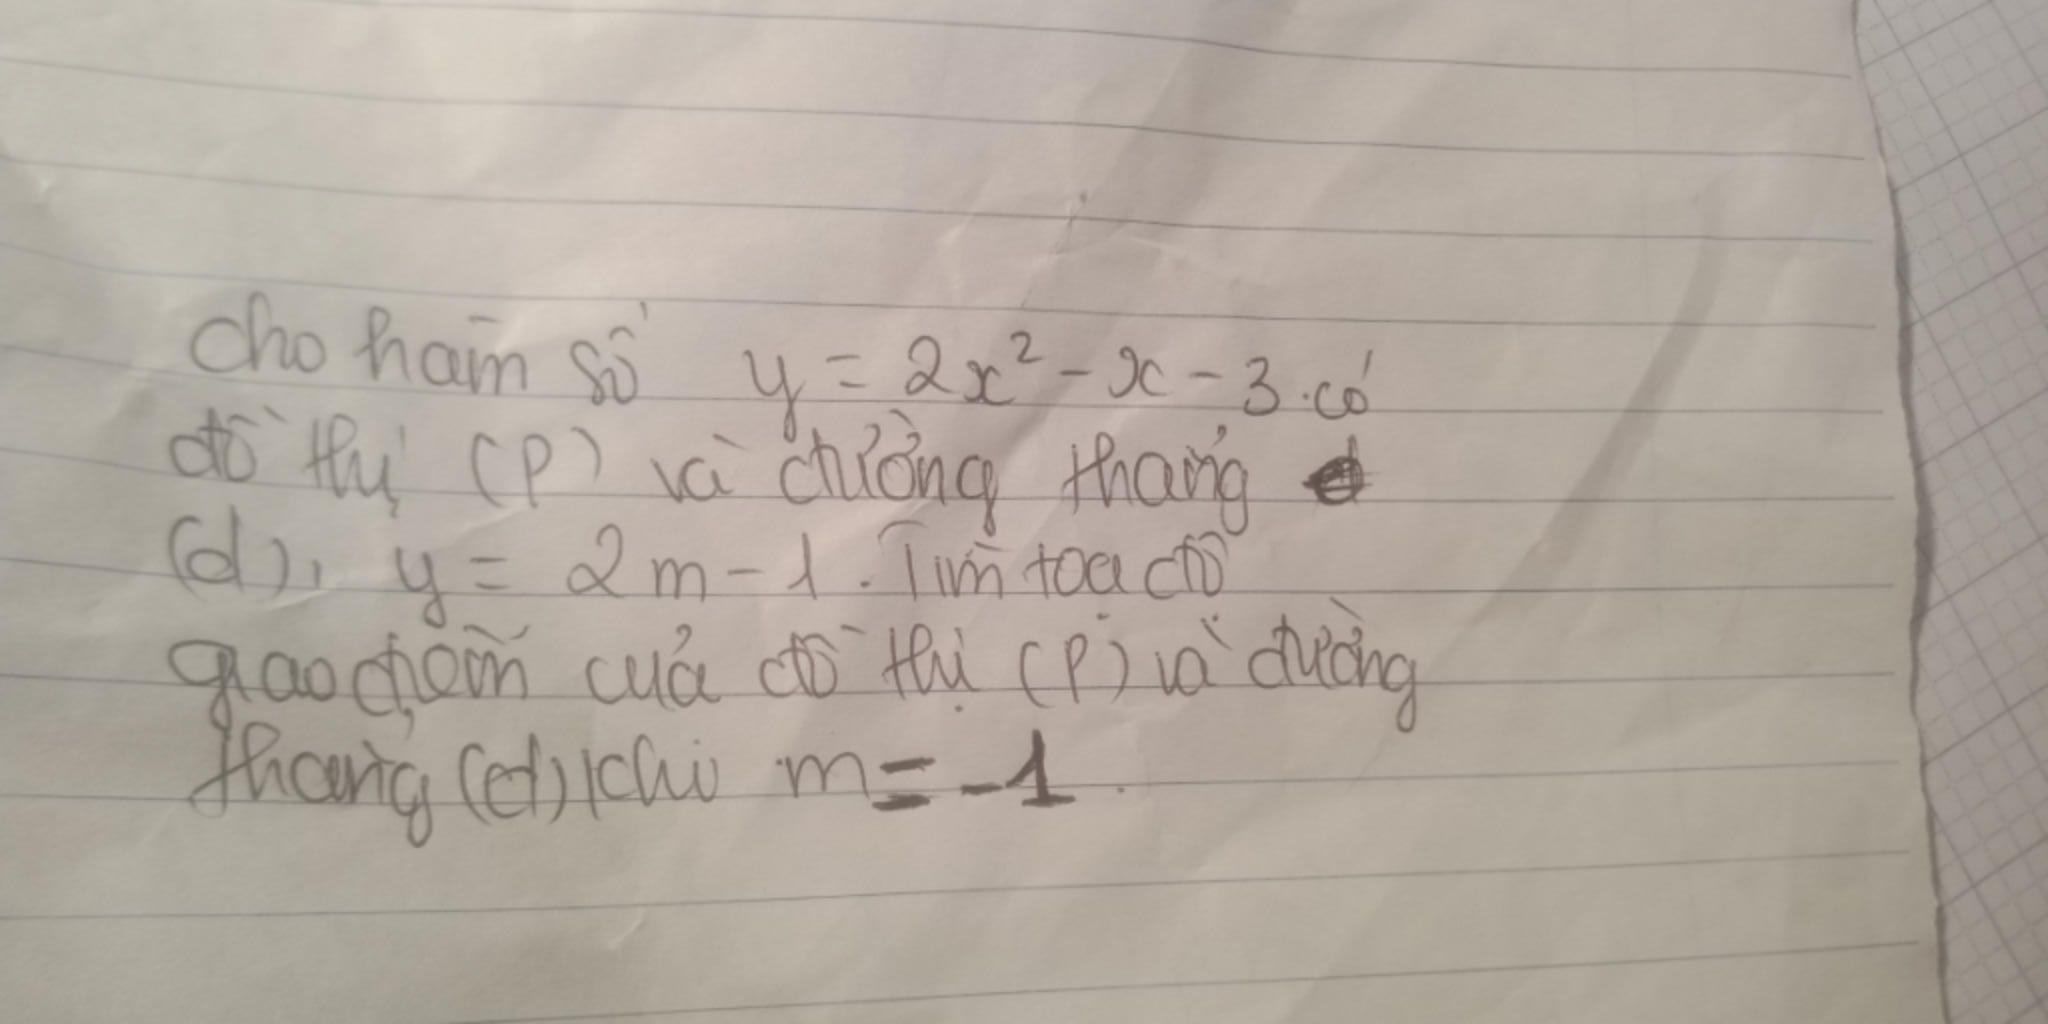 Cho hàm số y = 2x² - x - 3 có
đồ thị (P) và đường thẳng
(d), y = 2m - 1. Tìm toạ độ
giao điểm của đồ thị (P) và đường
thẳng (d) khi m = -1.